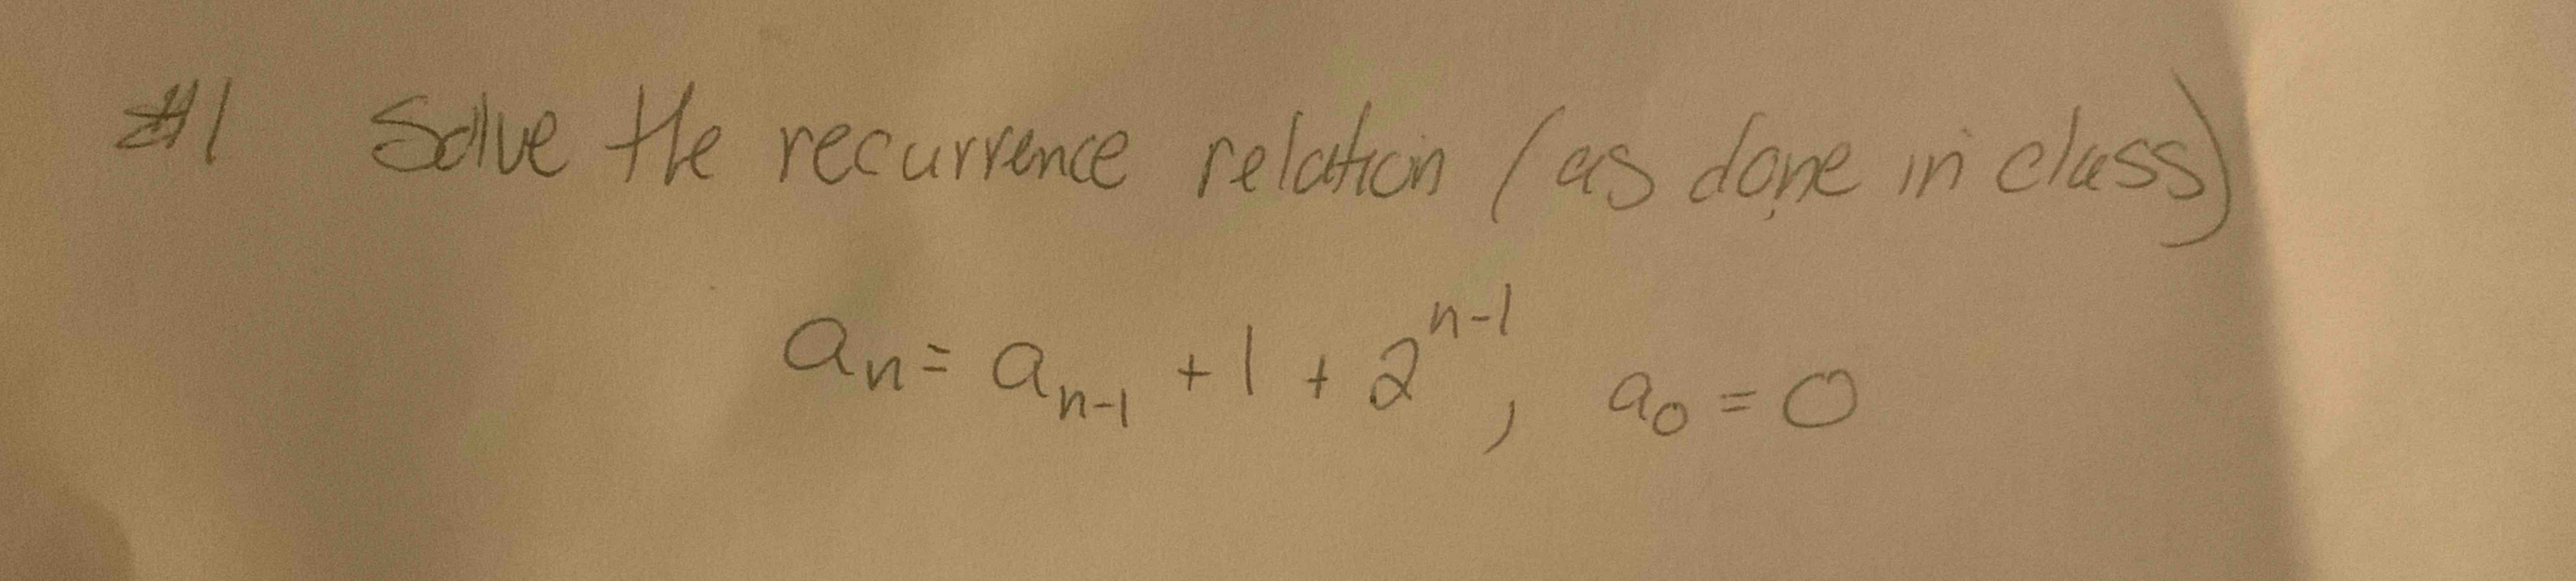 #1 Solve the recurrence relation (as done in class)
aₙ = aₙ₋₁ + 1 + 2ⁿ⁻¹, a₀ = 0